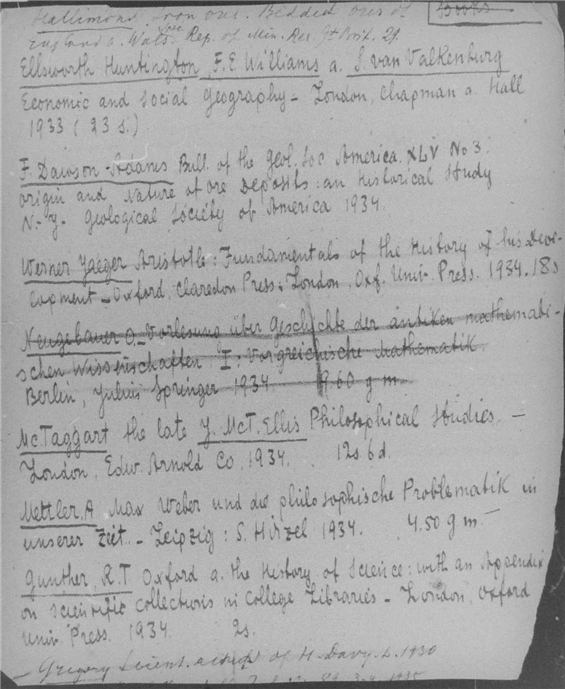 Hallimond, Iron ores. Bedded ores of
Books
England a. Wales Rep. of Min. Res. Gt Brit. 29.
Ellsworth Huntington, F.E. Williams a. S. van Valkenburg
Economic and Social Geography – London, Chapman a. Hall
1933 (23 s.)
F. Dawson-Adams Bull. of the Geol. Soc America. XLV No 3.
origin and Nature of ore Deposits: an Historical Study
N.-Y. Geological Society of America 1934.
Werner Yaeger Aristotle: Fundamentals of the History of his Deve-
lopment – Oxford, Claredon Press, London, Oxf. Univ. Press. 1934. 18s
Neugebauer O. – Vorlesung über Geschichte der antiken mathemati-
schen Wissenschaften. I: Vorgreichische Mathematik.
Berlin, Julius Springer 1934. 9.60 g m
McTaggart the late J. McT. Ellis Philosophical Studies. –
London, Edw. Arnold Co, 1934. 12s. 6d.
Mettler, A Max Weber und die philosophische Problematik in
unserer Zeit. – Leipzig: S. Hirzel 1934. 4.50 g m
Gunther, R.T Oxford a. the History of Science: with an Appendix
on Scientific Collections in College Libraries – London, Oxford
Univ. Press. 1934. 2s.
– Gregory of H. Davy. L. 1930